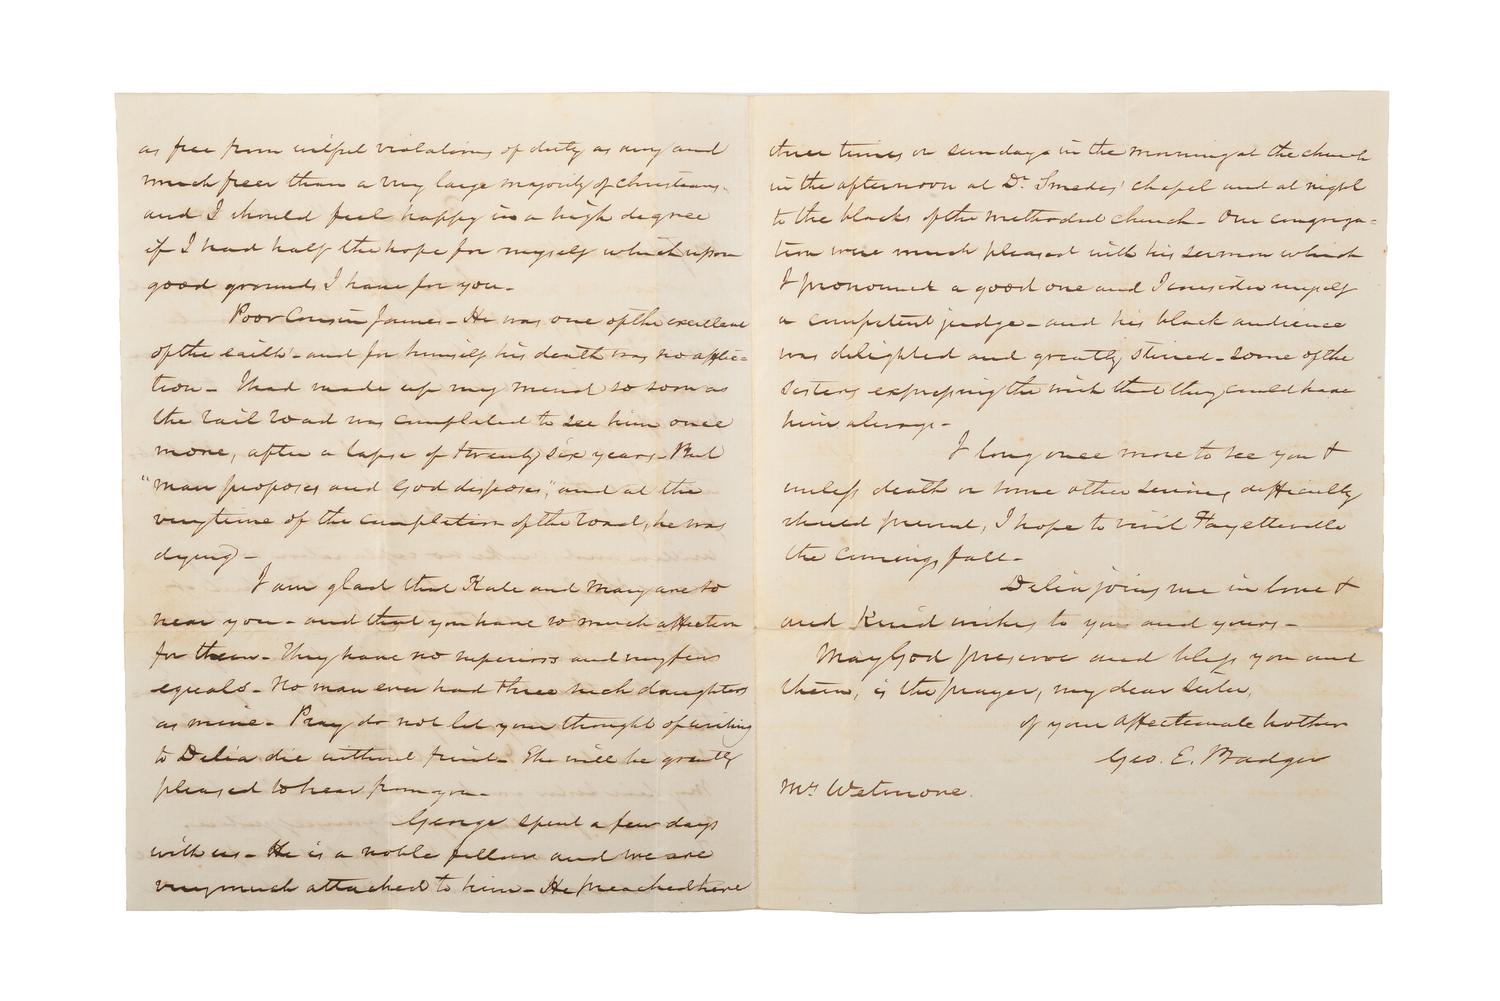 as free from wilful violations of duty as any and
much freer than a very large majority of christians -
and I should feel happy in a high degree
if I had half the hope for myself which upon
good grounds I have for you -
Poor Cousin James - He was one of the excellent
of the earth - and for himself his death was no afflic=
tion - I had made up my mind so soon as
the rail road was completed to see him once
more, after a lapse of twenty six years - But
"man proposes and God disposes", and at the
very time of the completion of the road, he was
dying -
I am glad that Kate and Mary are so
near you - and that you have so much affection
for them - They have no superiors and very few
equals - No man ever had three such daughters
as mine - Pray do not let your thought of writing
to Delia die without fruit - She will be greatly
pleased to hear from you -
George spent a few days
with us - He is a noble fellow and we are
very much attached to him - He preached here
three times on sundays in the morning at the church
in the afternoon at Dr. Smedes' chapel and at night
to the blacks of the methodist church - Our congrega=
tion were much pleased with his sermon which
I pronounced a good one and I consider myself
a competent judge - and his black audience
was delighted and greatly stirred - some of the
sisters expressing the wish that they could have
him always -
I long once more to see you &
unless death or some other serious difficulty
should prevent, I hope to visit Fayetteville
the coming fall -
Delia joins me in love &
and kind wishes to you and yours -
May God preserve and bless you and
them, is the prayer, my dear sister,
of your affectionate brother
Geo. E. Badger
Mrs Wetmore.